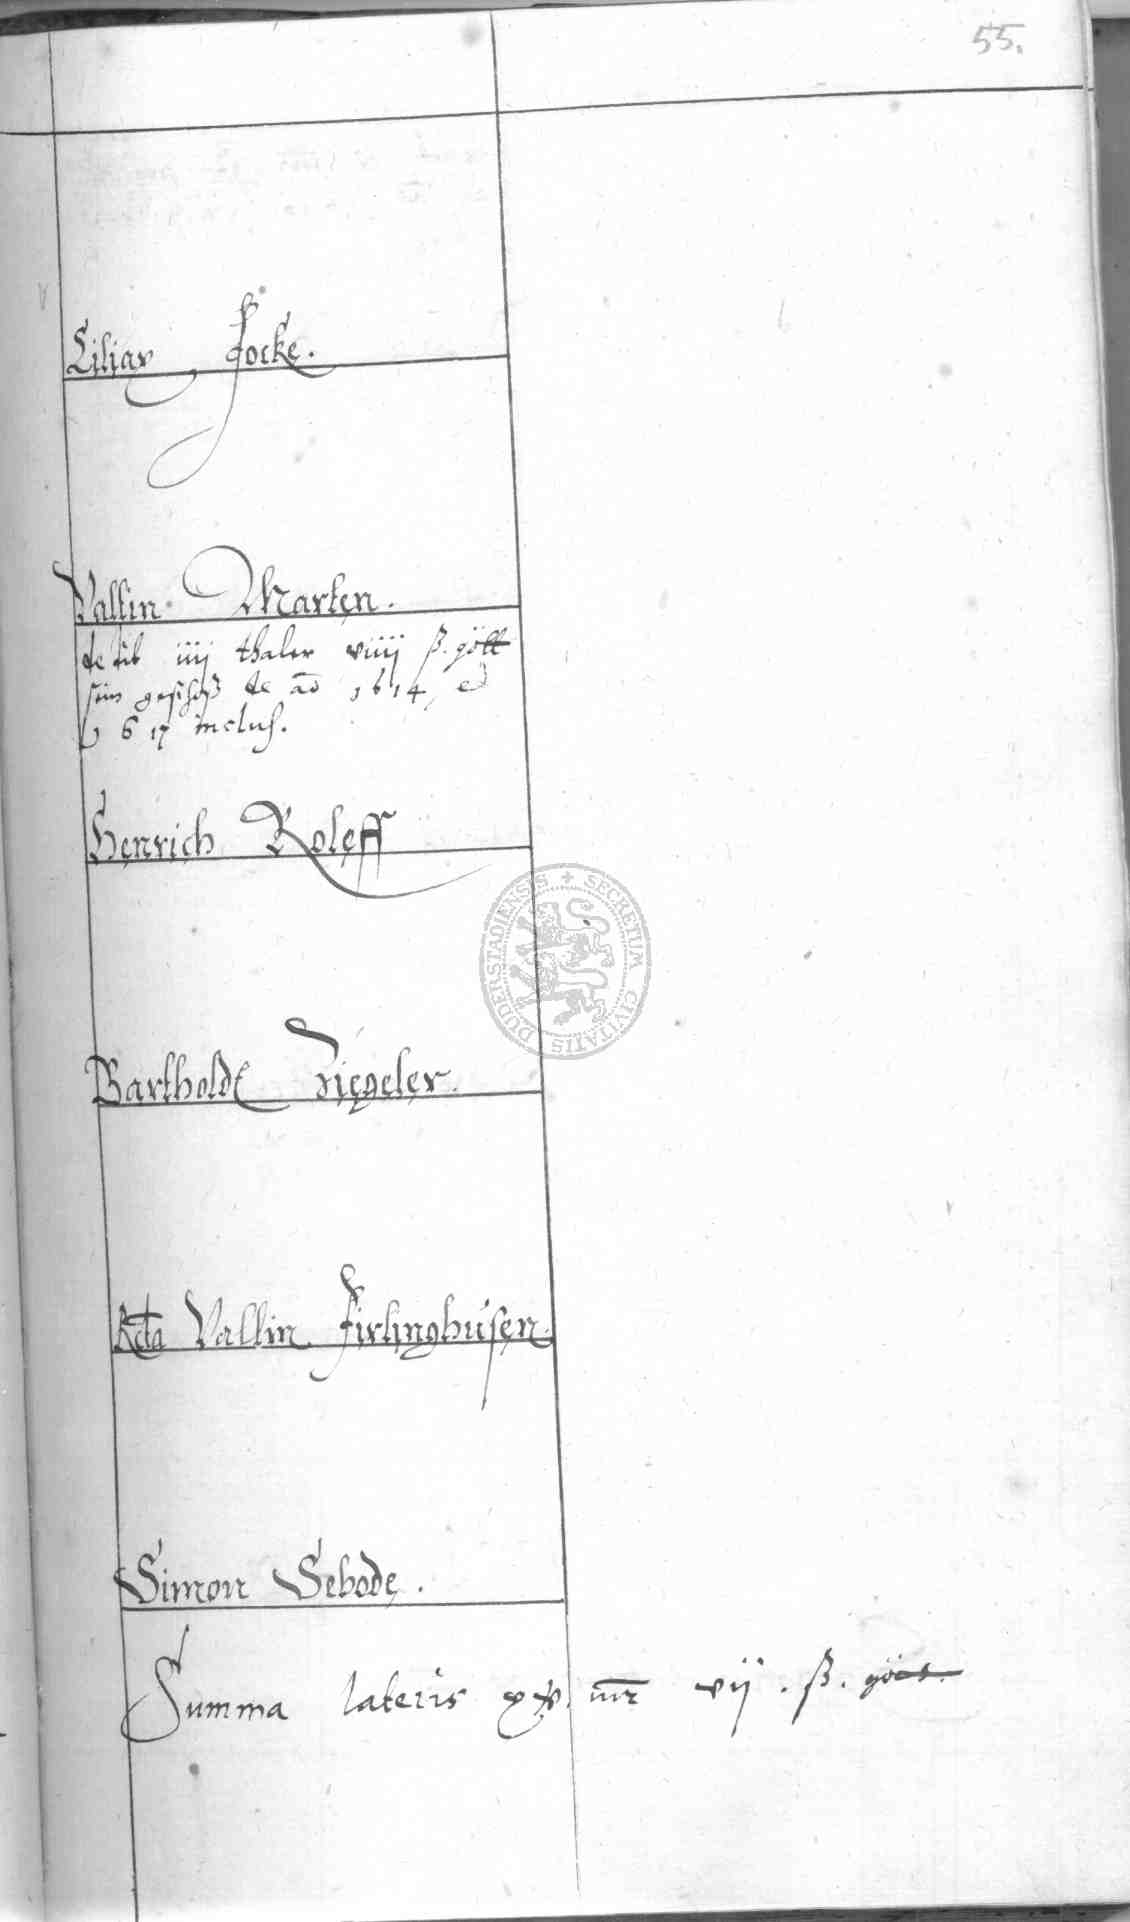 55.
Ciliax Focke.
Valtin Marten.
dedit iiij thaler viiij ß. gött
sein geschoß de ao 1614, et
1617 inclus.
Henrich Roleff
Bartholdt Ziegeler.
Rcta Valtin Firlinghusen.
Simon Sebode.
Summa lateris xv. mr vij. ß. gött.
DUDERSTADIENSIS + SECRETUM CIVITATIS